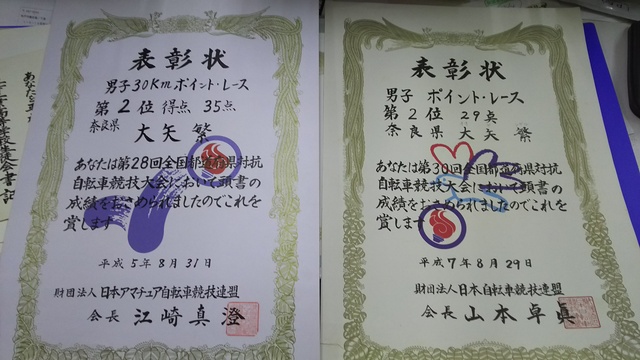 表彰状
男子30Kmポイント・レース
第2位 得点 35点
奈良県 大矢 繁
あなたは第28回全国都道府県対抗
自転車競技大会において頭書の
成績をおさめられましたのでこれを
賞します
平成5年8月31日
財団法人 日本アマチュア自転車競技連盟
会長 江崎真澄
表彰状
男子 ポイント・レース
第2位 29点
奈良県 大矢 繁
あなたは第30回全国都道府県対抗
自転車競技大会において頭書の
成績をおさめられましたのでこれを
賞します
平成7年8月29日
財団法人 日本自転車競技連盟
会長 山本卓眞